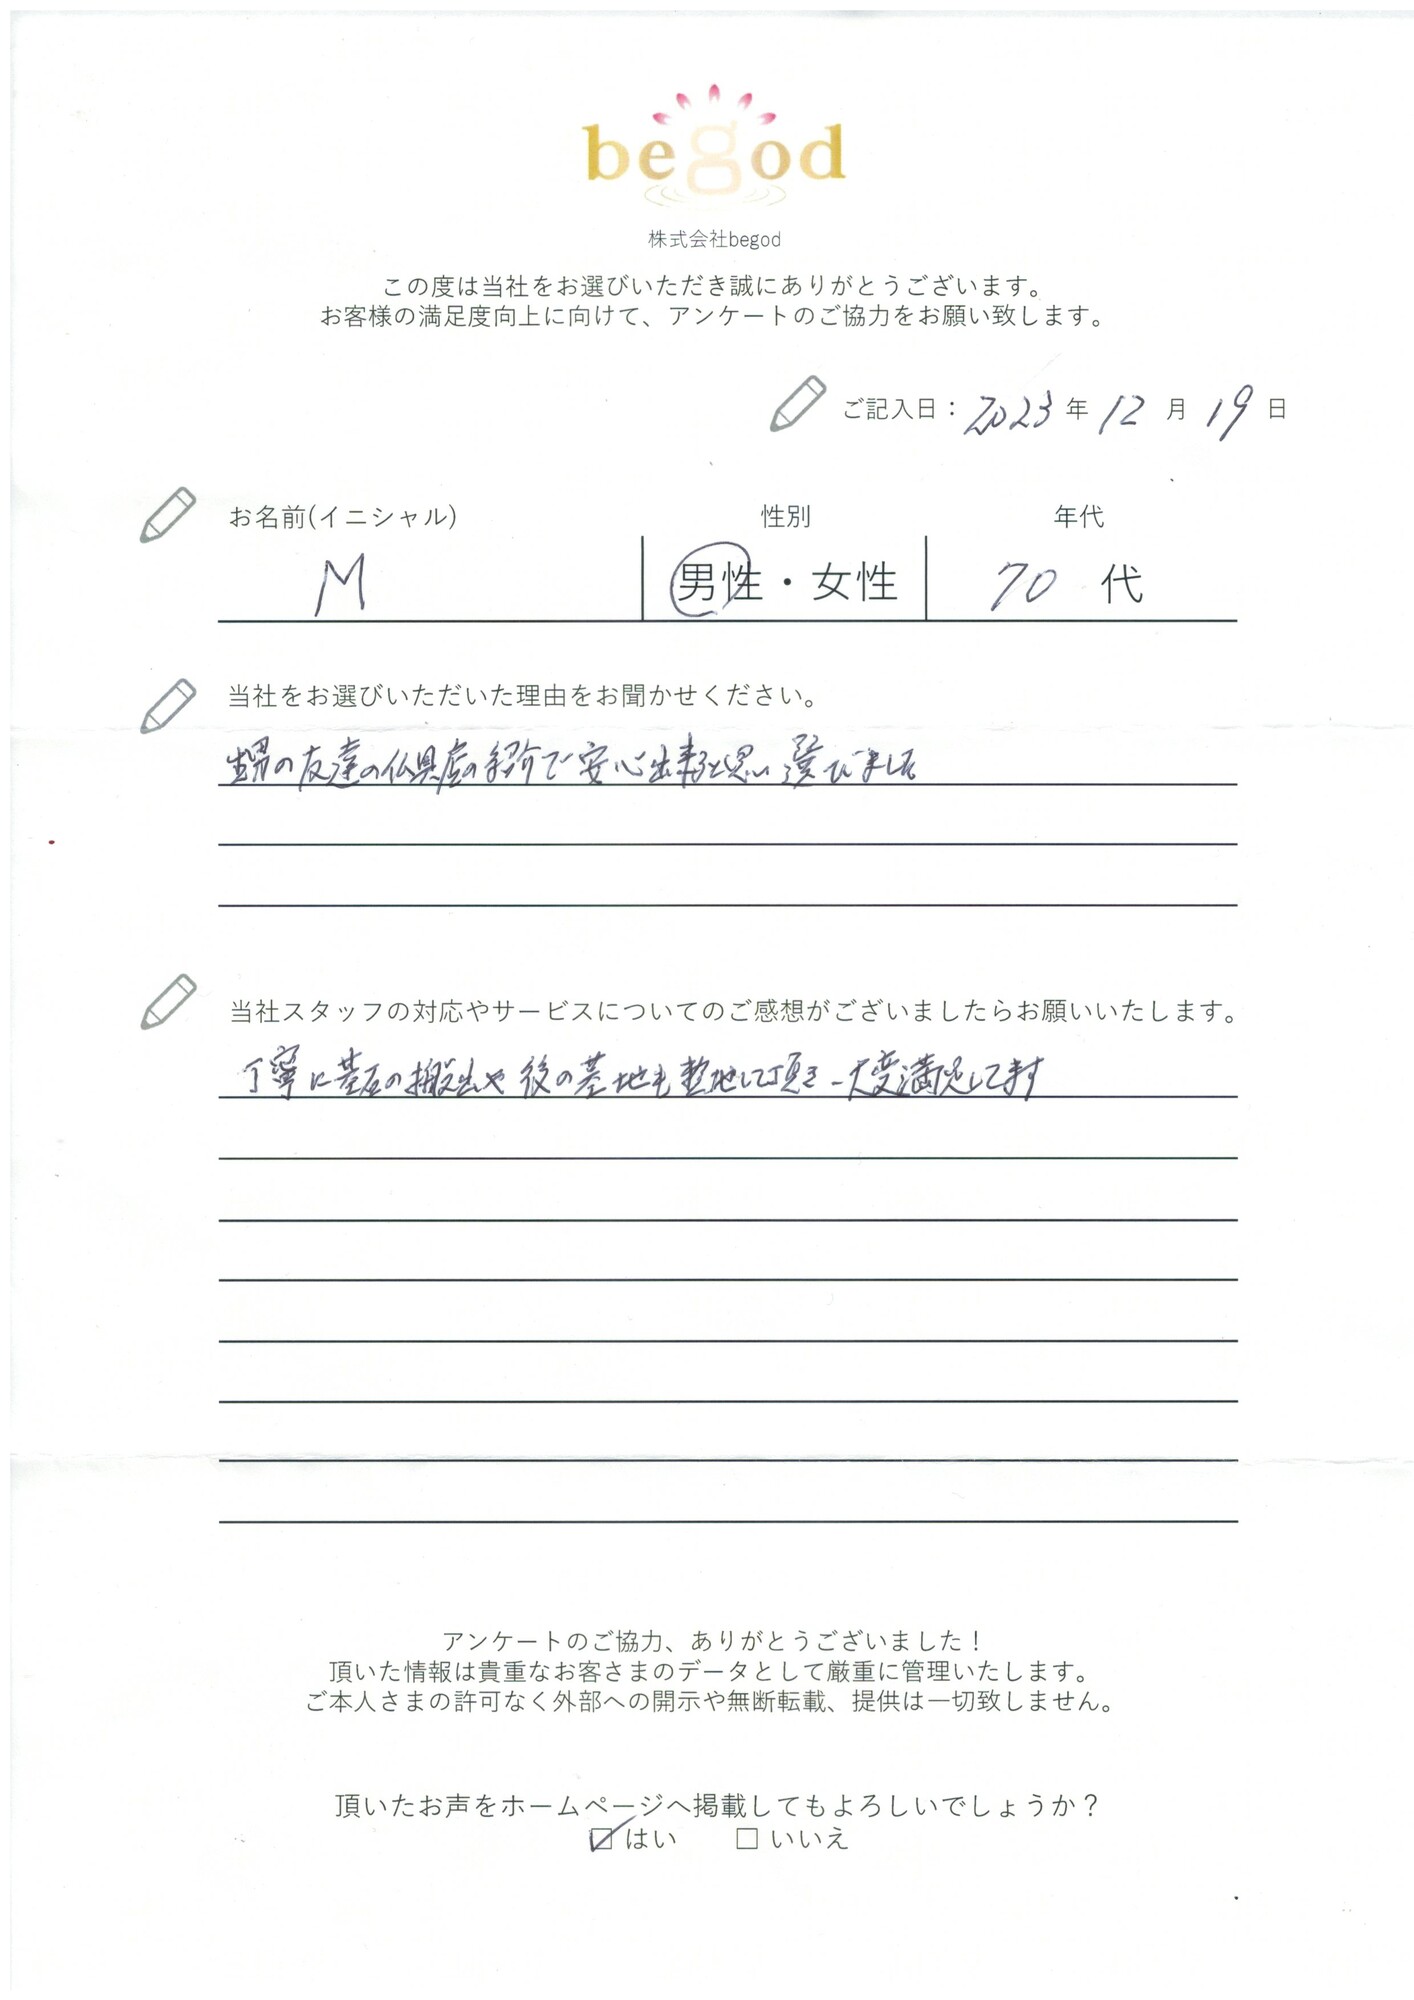 begod
株式会社begod
この度は当社をお選びいただき誠にありがとうございます。
お客様の満足度向上に向けて、アンケートのご協力をお願い致します。
ご記入日：2023年12月19日
お名前(イニシャル) 性別 年代
M 男性・女性 70代
当社をお選びいただいた理由をお聞かせください。
甥の友達の仏具店の紹介で安心出来ると思い選びました
当社スタッフの対応やサービスについてのご感想がございましたらお願いいたします。
丁寧に墓石の搬出や後の墓地も整地して頂き大変満足してます
アンケートのご協力、ありがとうございました！
頂いた情報は貴重なお客さまのデータとして厳重に管理いたします。
ご本人さまの許可なく外部への開示や無断転載、提供は一切致しません。
頂いたお声をホームページへ掲載してもよろしいでしょうか？
☑はい □いいえ